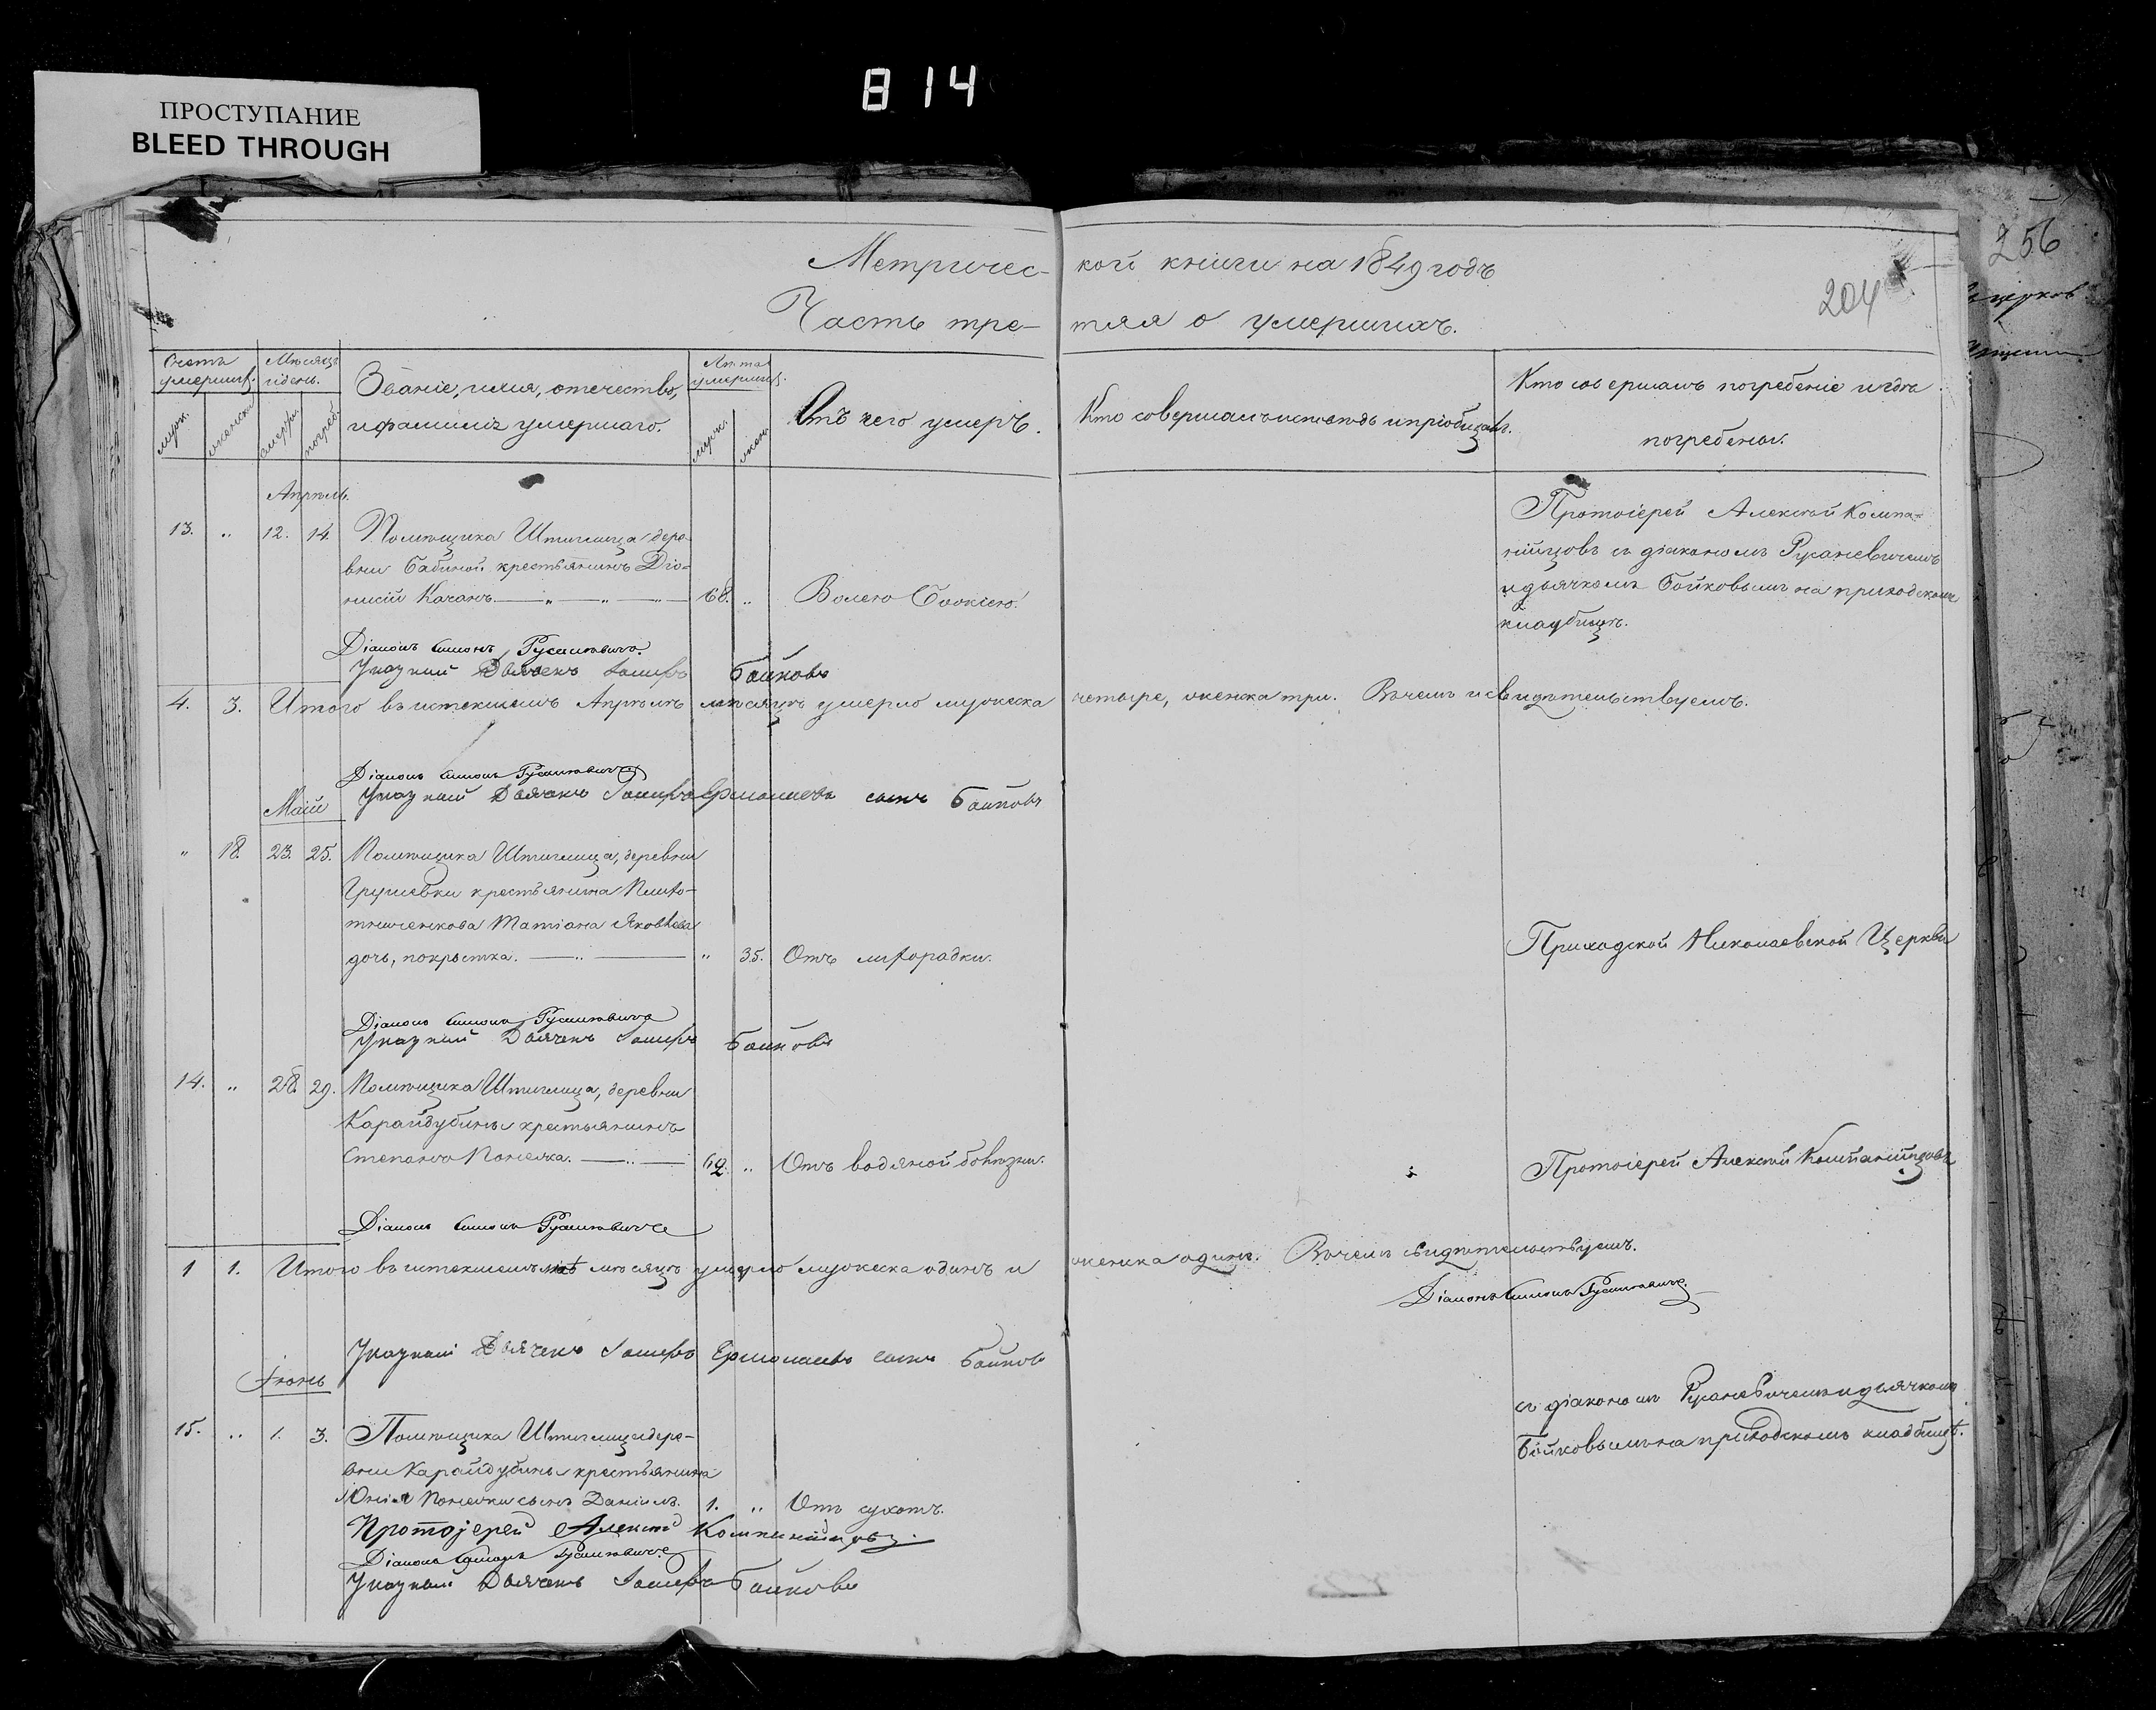 814
ПРОСТУПАНИЕ
BLEED THROUGH
256
204
Метричес- кой книги на 1849 годъ
Часть тре- тяя о умершихъ.
Счетъ умерших. Мѣсяцъ и день. Званіе, имя, отечество, и фамилія умершаго. Лѣта умерших. Отъ чего умеръ. Кто совершалъ исповѣдь и пріобщалъ. Кто совершалъ погребеніе и гдѣ погребены.
муж. женска умерш. погреб. муж. жен.
Апрѣль.
13. „ 12. 14. Помѣщика Штиглица дере-
вни Бабиной крестьянинъ Діо-
нисій Качанъ. 68. „ Волею Божіею.
Протоіерей Алексій Компа-
нійцовъ съ діакономъ Русаневичемъ
и дьячкомъ Бойковымъ на приходскомъ
кладбищѣ.
Діаконъ Симонъ Русаневичъ
Указный Дьячекъ Бойковъ
4. 3. Итого въ истекшемъ Апрѣлѣ мѣсяцѣ умерло мужеска четыре, женска три. Въ чемъ и свидѣтельствуемъ.
Діаконъ Симонъ Русаневичъ
Указный Дьячекъ Ермолаевъ сынъ Бойковъ
Маій
„ 18. 23. 25. Помѣщика Штиглица, деревни
Грушевки крестьянина Плото-
тниченкова Татіана Яковлева
дочь, покрытка. „ 35. Отъ лихорадки.
Приходской Николаевской Церкви
Діаконъ Симонъ Русаневичъ
Указный Дьячекъ Бойковъ
14. „ 28. 29. Помѣщика Штиглица, деревни
Карайдубины крестьянинъ
Степанъ 62. „ Отъ водяной болѣзни.
Протоіерей Алексій Компанійцовъ
Діаконъ Симонъ Русаневичъ
1 1. Итого въ истекшемъ маѣ мѣсяцѣ умерло мужеска одинъ и женска одна. Въ чемъ свидѣтельствуемъ.
Діаконъ Симонъ Русаневичъ.
Указный Дьячекъ Ермолаевъ сынъ Бойковъ
Іюнь
съ діакономъ Русаневичемъ и дьячкомъ
Бойковымъ на приходскомъ кладбищѣ.
15. „ 1. 3. Помѣщика Штиглица дере-
вни Карайдубины крестьянина
сынъ Даніилъ. 1. „ Отъ сухотъ.
Протоіерей Алексій Компанійцовъ.
Діаконъ Симонъ Русаневичъ
Указный Дьячекъ Бойковъ